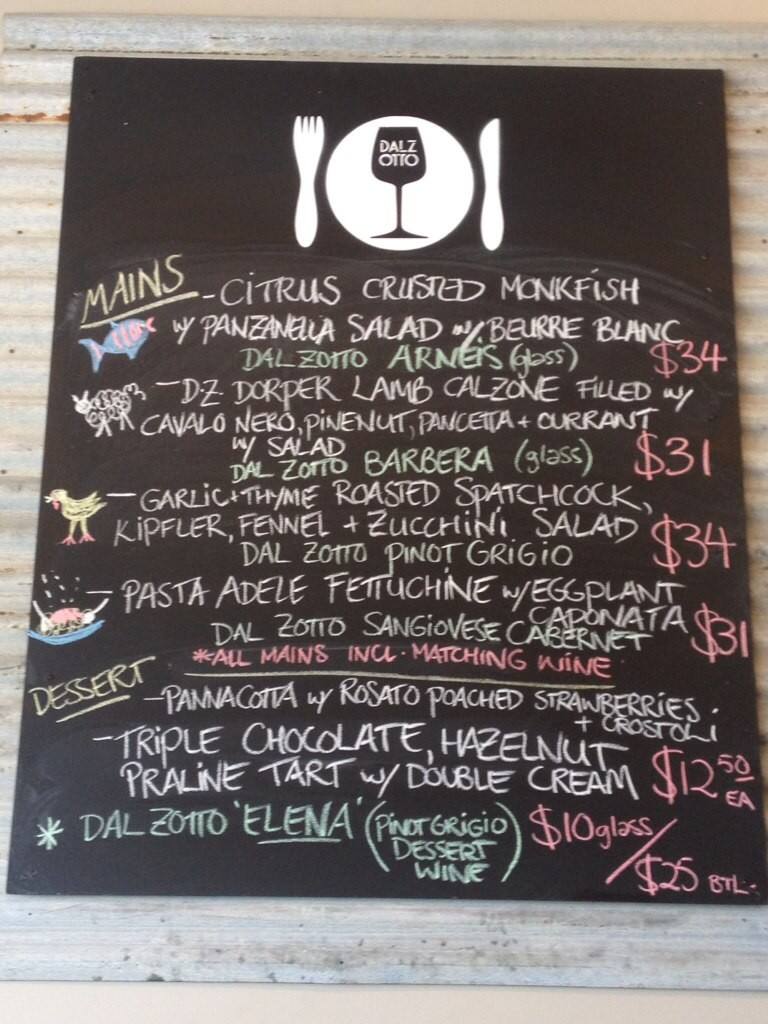 DALZ
OTTO
MAINS
- CITRUS CRUSTED MONKFISH
w/ PANZANELLA SALAD w/ BEURRE BLANC
DAL ZOTTO ARNEIS (glass) $34
- DZ DORPER LAMB CALZONE FILLED w/
CAVALO NERO, PINENUT, PANCETTA + CURRANT
w/ SALAD
DAL ZOTTO BARBERA (glass) $31
- GARLIC + THYME ROASTED SPATCHCOCK,
KIPFLER, FENNEL + ZUCCHINI SALAD
DAL ZOTTO PINOT GRIGIO $34
- PASTA ADELE FETTUCHINE w/ EGGPLANT
CAPONATA
DAL ZOTTO SANGIOVESE CABERNET $31
*ALL MAINS INCL. MATCHING WINE
DESSERT
- PANNACOTTA w/ ROSATO POACHED STRAWBERRIES
+ CROSTOLI
- TRIPLE CHOCOLATE, HAZELNUT
PRALINE TART w/ DOUBLE CREAM $12.50 EA
* DAL ZOTTO 'ELENA' (PINOT GRIGIO
DESSERT
WINE) $10 glass/
$25 BTL.